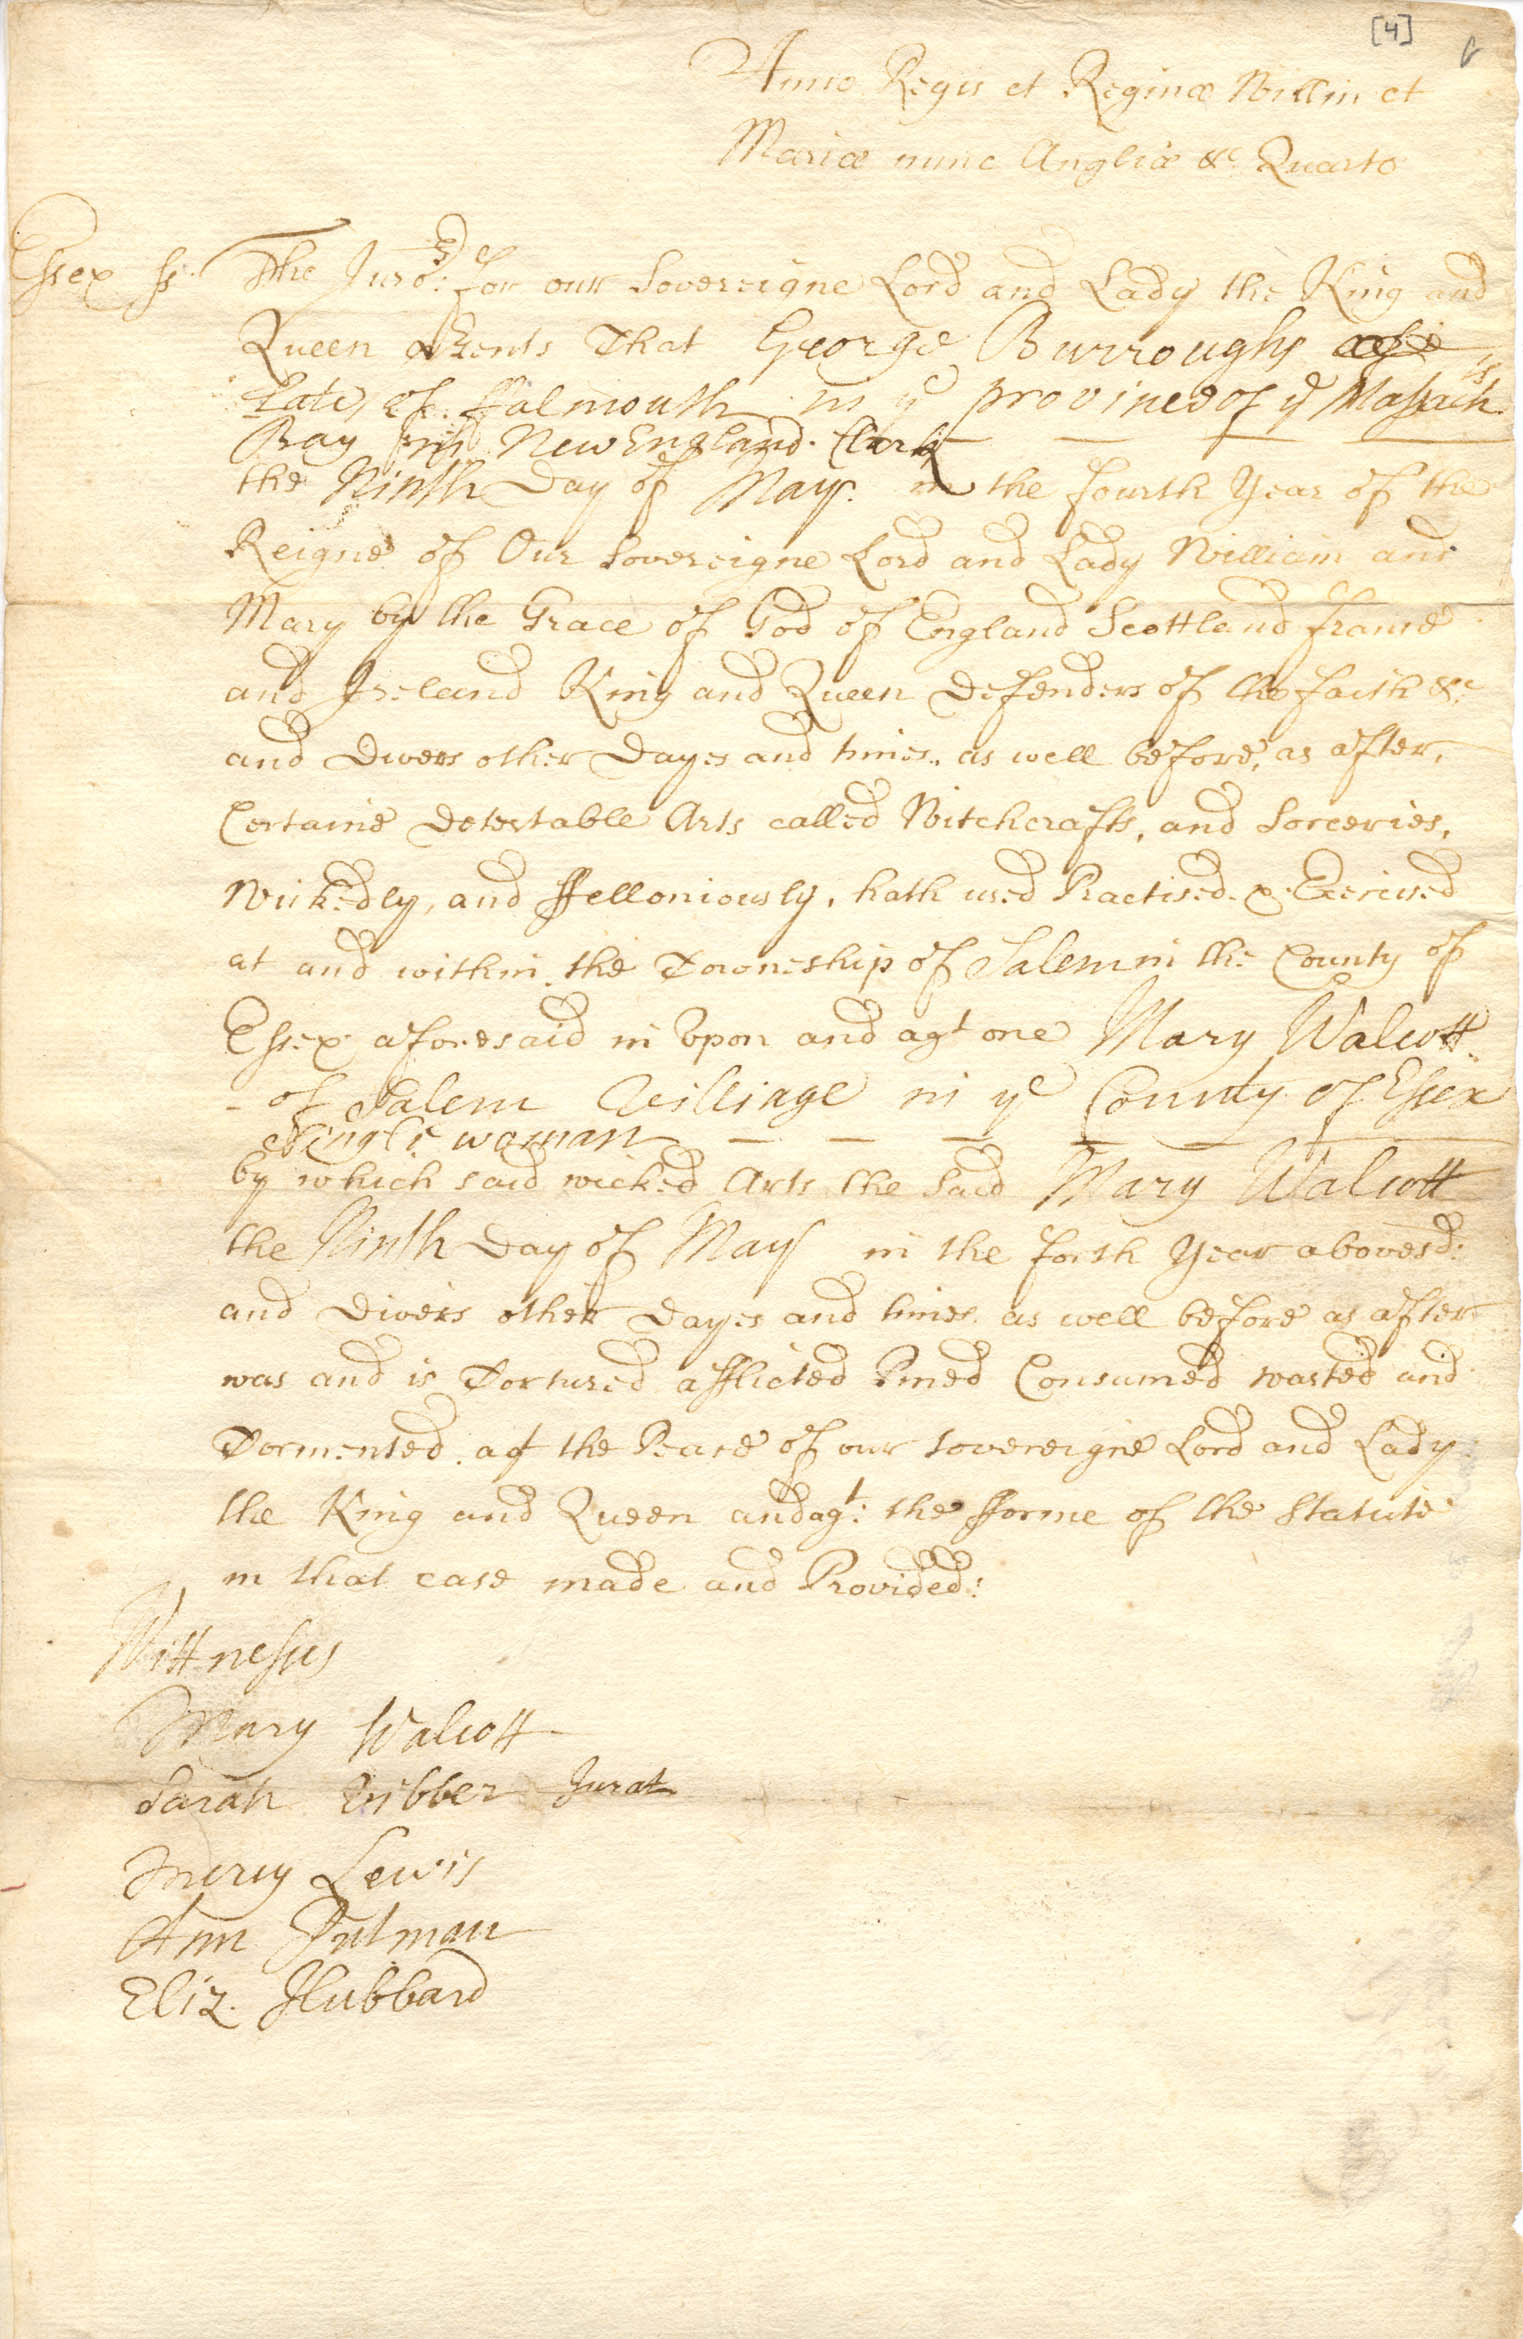 [4]
Anno Regis et Reginæ Willm et
Mariæ nunc Angliæ &c Quarto
Essex ss. The Juro:rs for our Sovereigne Lord and Lady the King and
Queen p'sents That George Burroughs
Late of ffalmouth in ye province of ye Massach:ts
Bay in New England. Clark
the Ninth Day of May. in the fourth Year of the
Reigne of Our Sovereigne Lord and Lady William and
Mary by the Grace of God of England Scottland france
and Ireland King and Queen Defenders of the faith &c
and Divers other Dayes and times, as well before, as after,
Certaine Detestable Arts called Witchcrafts, and Sorceries,
Wickedly, and ffelloniously, hath used Practised & Exercised
at and within the Towneship of Salem in the County of
Essex aforesaid in Upon and agt one Mary Walcott
of Salem Villiage in ye County of Essex
Single woman
by which said wicked Arts the Said Mary Walcott
the Ninth Day of May in the forth Year abovesd:
and Divers other Dayes and times as well before as after
was and is Tortured afflicted Pined Consumed wasted and
Tormented. agt the Peace of our Sovereigne Lord and Lady
the King and Queen and agt: the fforme of the Statute
in that case made and Provided:
Wittnesses
Mary Walcott
Sarah Vibber Jurat
Mercy Lewis
Ann Putman
Eliz. Hubbard